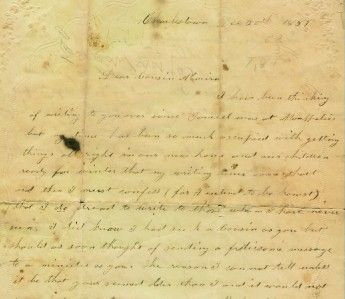 Charlestown Dec 20th 1857
Dear Cousin Almira
I have been thinking
of writing to you ever since I was at
but my time has been so much occupied with getting
things all right in our new home and our children
ready for winter that my writing time
and then I must confess (for I intend to be honest)
that I do dread to write to those whom I have never
seen. I did know I had such a cousin as you but
should as soon thought of sending a message
to a minister as you. The reason I cannot tell unless
it be that you seemed older than I and it would not